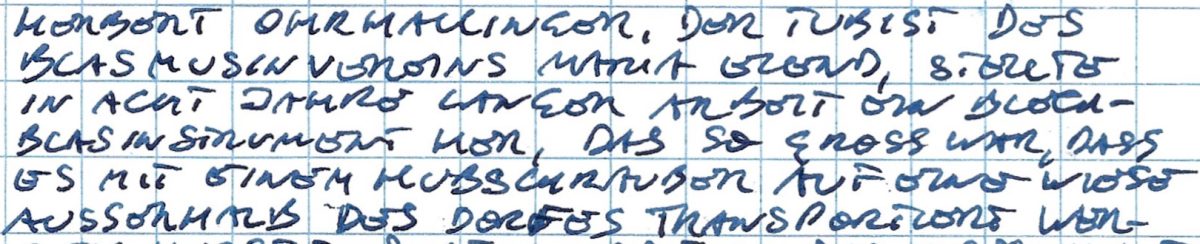 HERBERT OHRMALLINGER, DER TUBIST DES
BLASMUSIKVEREINS MARIA ELEND, STELLTE
IN ACHT JAHRE LANGER ARBEIT EIN BLECH-
BLASINSTRUMENT HER, DAS SO GROSS WAR, DASS
ES MIT EINEM HUBSCHRAUBER AUF EINE WIESE
AUSSERHALB DES DORFES TRANSPORTIERT WER-